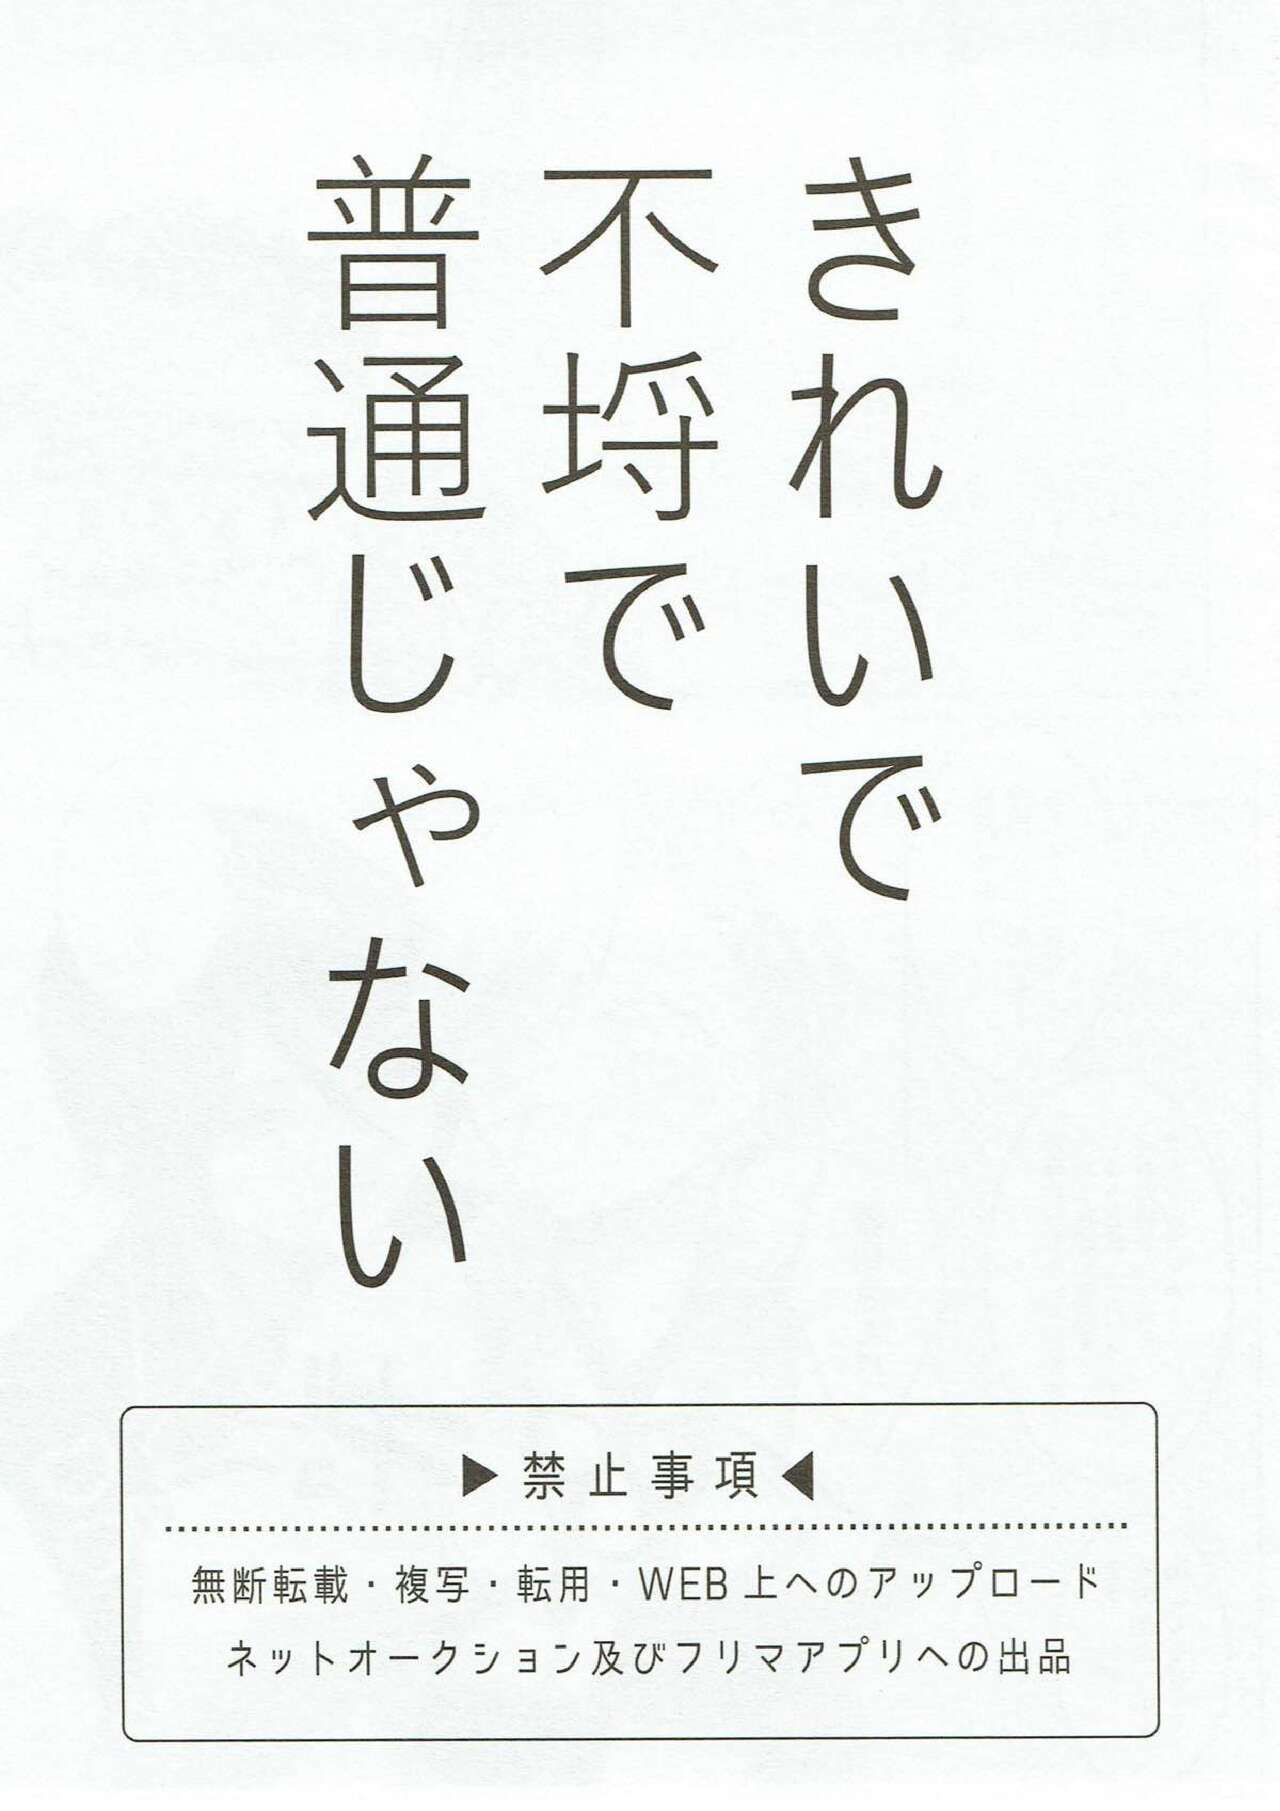 きれいで
不埒で
普通じゃない
▶禁止事項◀
無断転載・複写・転用・WEB上へのアップロード
ネットオークション及びフリマアプリへの出品